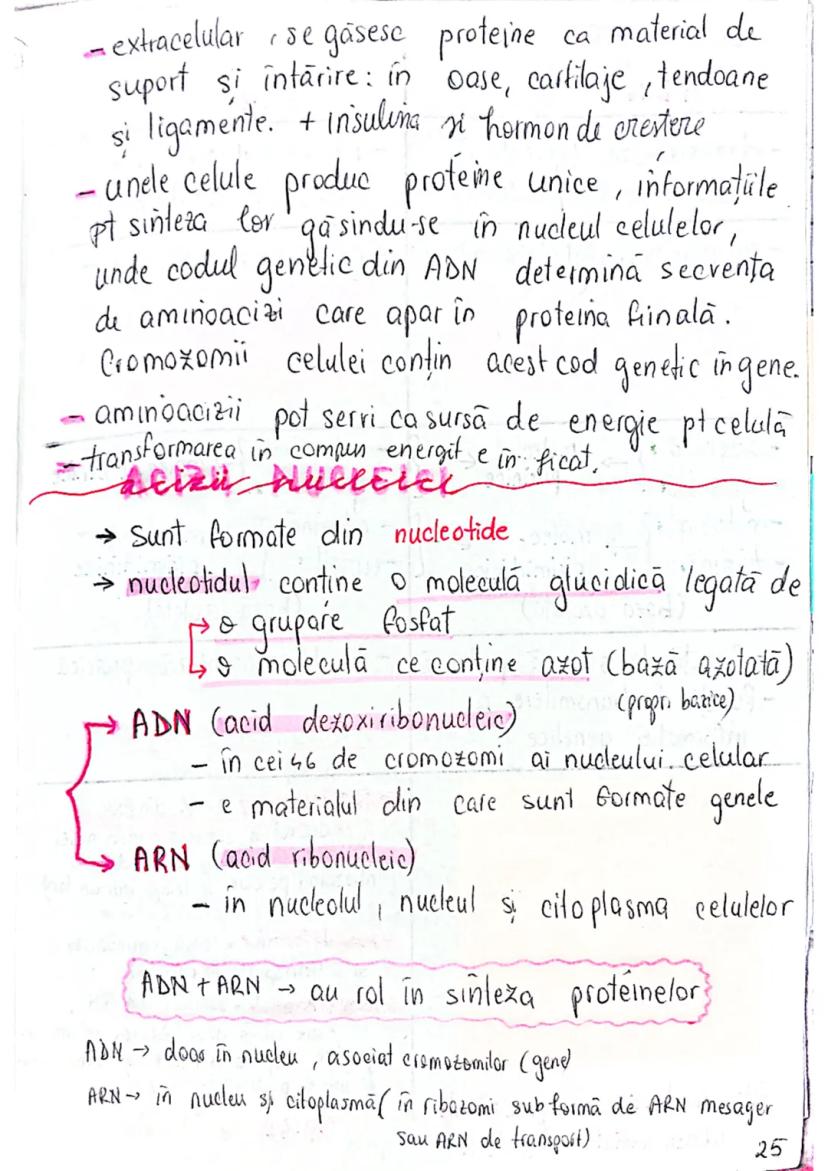 - extracelular, se găsesc proteine ca material de
suport și întărire: în oase, cartilaje, tendoane
și ligamente. + insulina și hormon de creștere
- unele celule produc proteine unice, informațiile
pt sinteza lor găsindu-se în nucleul celulelor,
unde codul genetic din ADN determină secvența
de aminoacizi care apar în proteina finală.
Cromozomii celulei conțin acest cod genetic în gene.
- aminoacizii pot servi ca sursă de energie pt celulă
- transformarea în compuN energit e în ficat.
ACIZII NUCLEICI
→ Sunt formate din nucleotide
→ nucleotidul conține o moleculă glucidică legată de
→ o grupare fosfat
→ o moleculă ce conține azot (bază azotată)
(propr. bazice)
→ ADN (acid dezoxiribonucleic)
- în cei 46 de cromozomi ai nucleului celular
- e materialul din care sunt formate genele
→ ARN (acid ribonucleic)
- în nucleolul, nucleul și citoplasma celulelor
ADN + ARN → au rol în sinteza proteinelor
ADN → doar în nucleu, asociat cromozomilor (gene)
ARN → în nucleu și citoplasmă (în ribozomi sub formă de ARN mesager
sau ARN de transport)
25